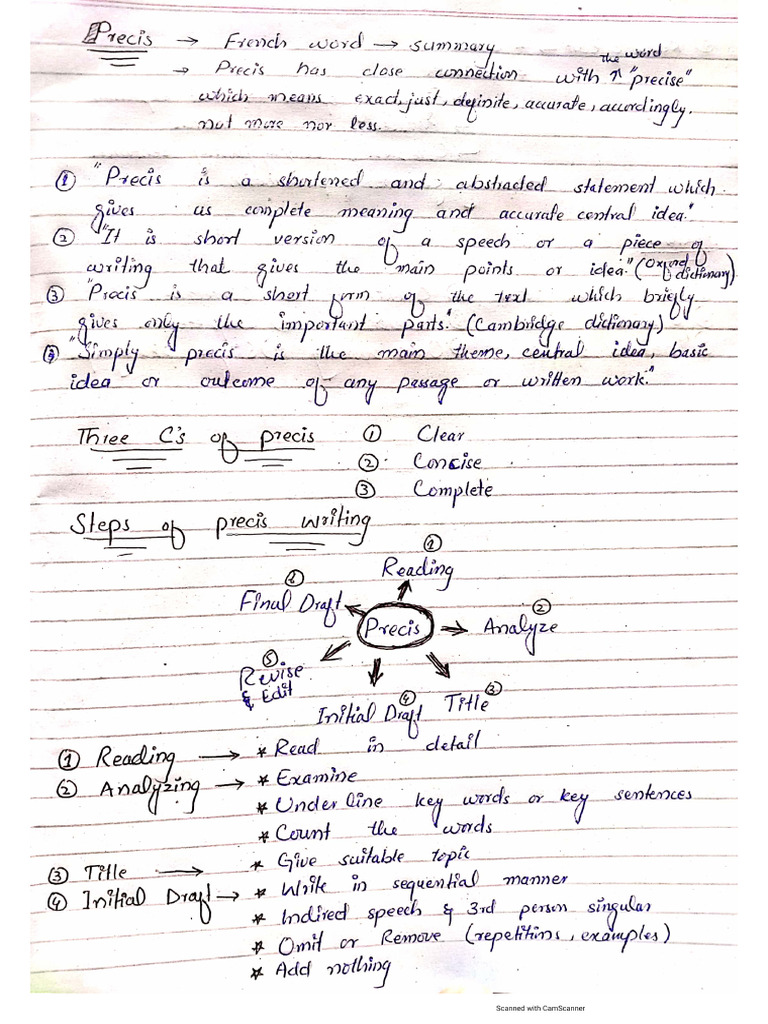 Precis → French word → summary
→ Precis has close connection with ↑ the word "precise"
which means exact, just, definite, accurate, accordingly.
nut more nor less.
① "Precis is a shortened and abstracted statement which
gives us complete meaning and accurate central idea."
② "It is short version of a speech or a piece of
writing that gives the main points or idea." (Oxford dictionary)
③ "Precis is a short form of the text which briefly
gives only the important parts." (Cambridge dictionary)
"Simply precis is the main theme, central idea, basic
idea or outcome of any passage or written work."
Three C's of precis ① Clear
② Concise
③ Complete
Steps of precis writing
①
Reading
Final Draft
②
Precis → Analyze
⑤
Revise
& Edit
④
Initial Draft
③
Title
① Reading → * Read in detail
② Analyzing → * Examine
* Under line key words or key sentences
* Count the words
③ Title → * Give suitable topic
④ Initial Draft → * Write in sequential manner
* Indired speech & 3rd person singular
* Omit or Remove (repetitins, examples)
* Add nothing
Scanned with CamScanner